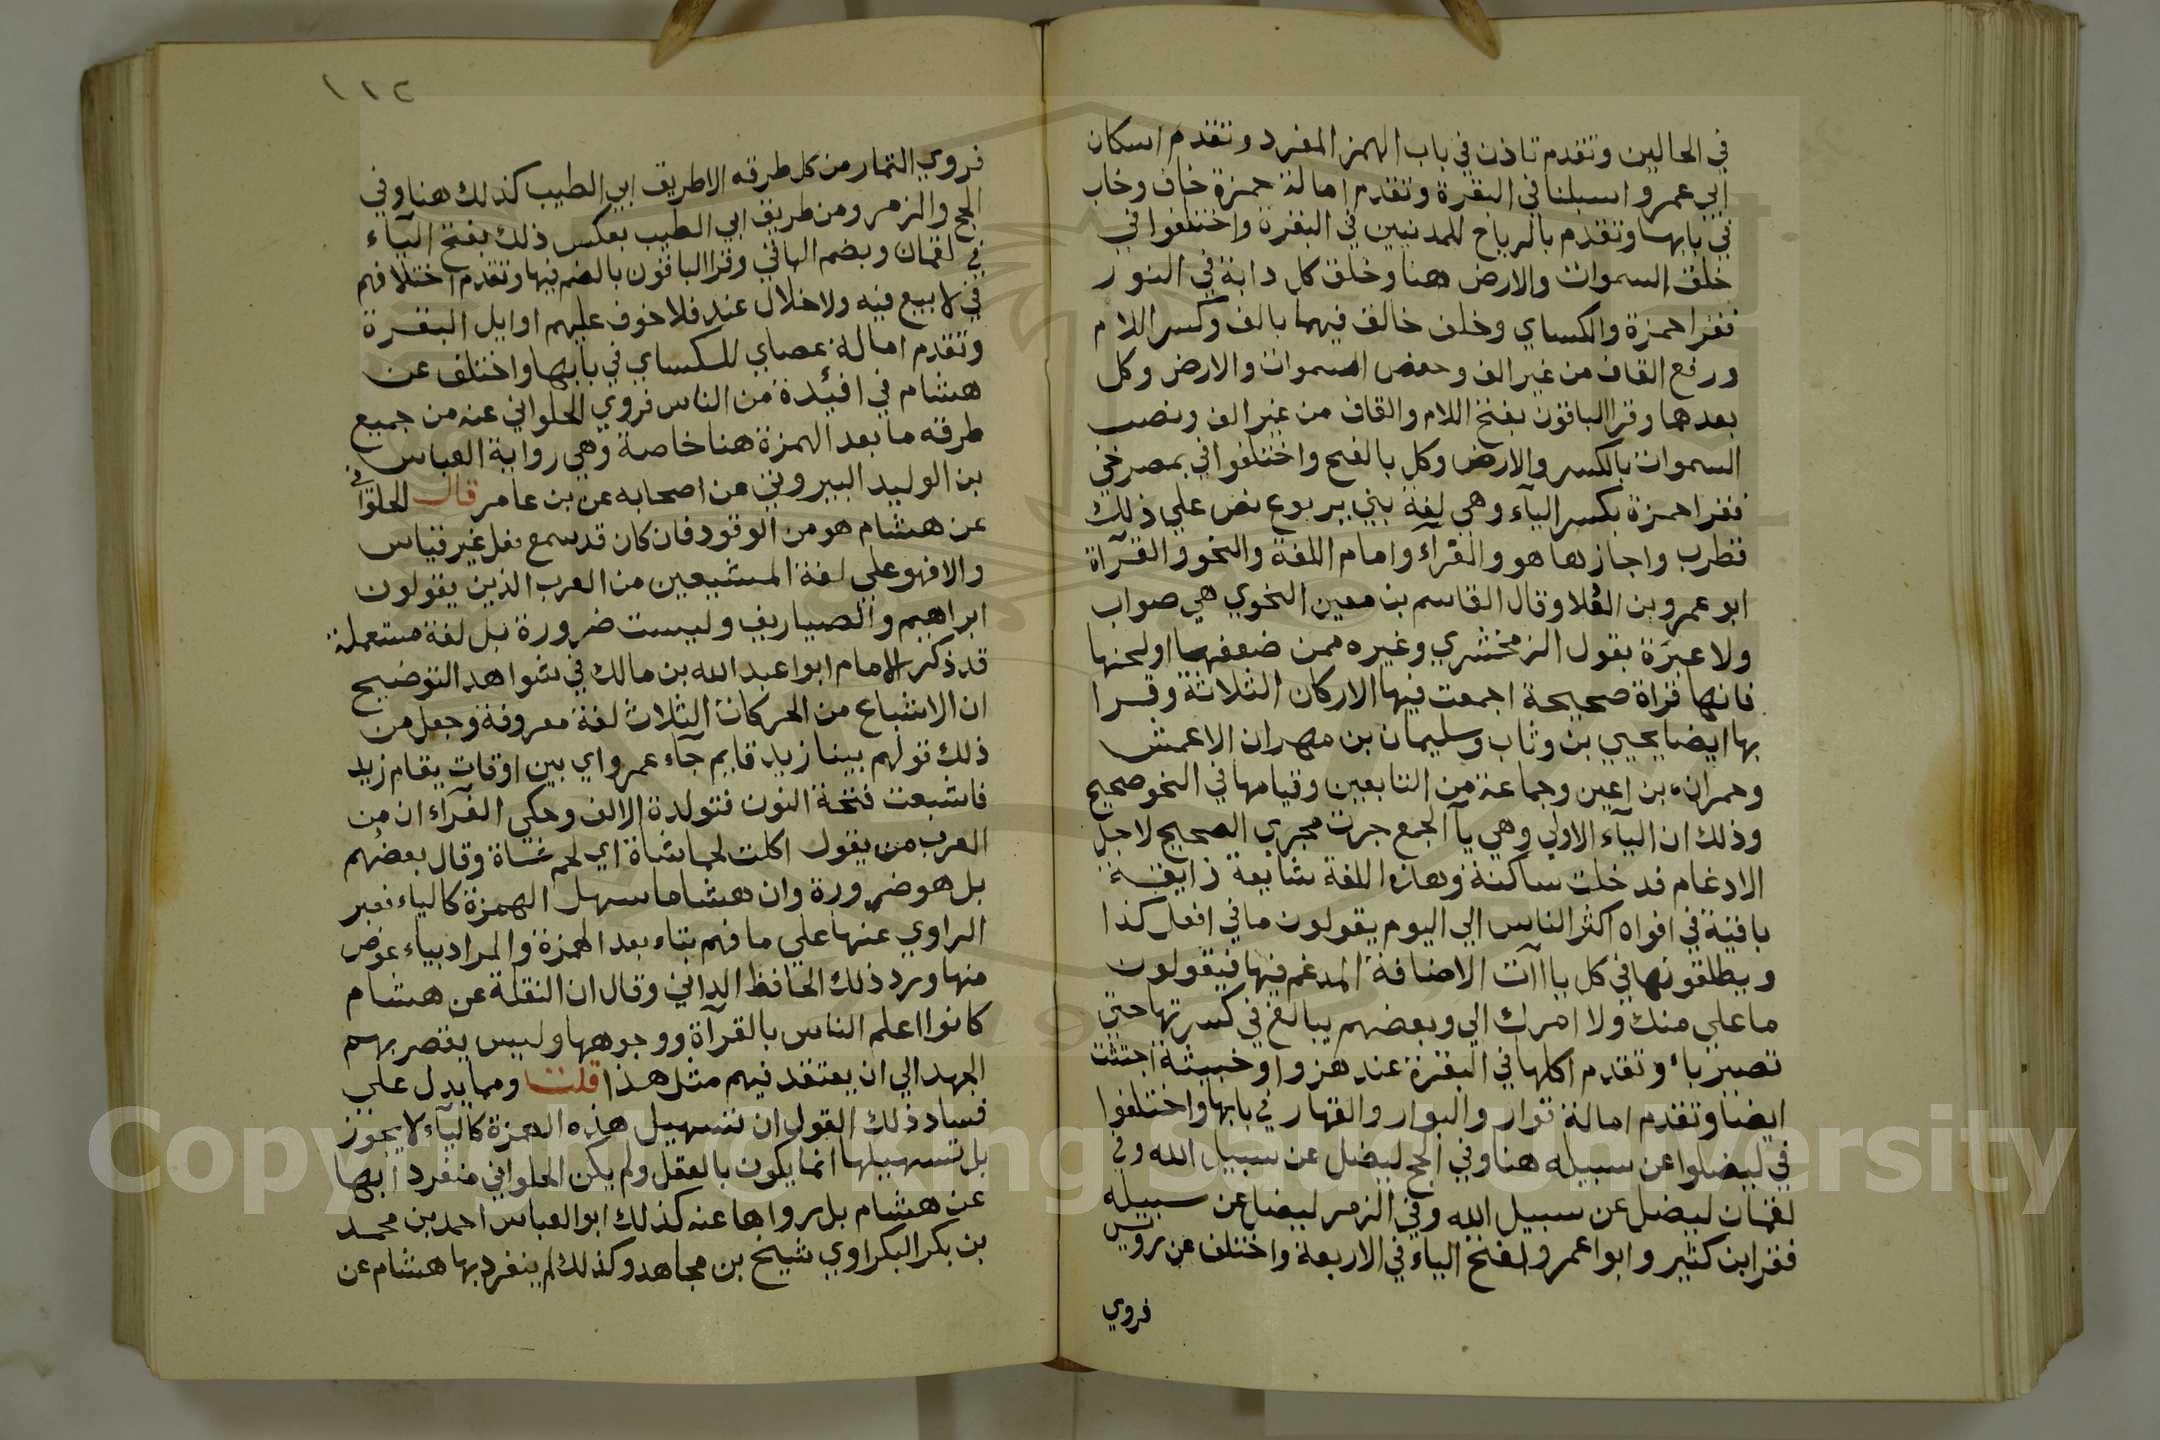 في الحالين وتقدم تاذن في باب الهمز المفرد وتقدم اسكان
ابي عمرو اسبلنا في البقرة وتقدم امالة حمزة خاف وخاب
في بابهما وتقدم بالرياح للمدنيين في البقرة واختلفوا في
خلق السموات والارض هنا وخلق كل دابة في النور
فقرا حمزة والكساي وخلف خالق فيهما بالف وكسر اللام
ورفع القاف من غير الف وخفض السموات والارض وكل
بعدها وقرا الباقون بفتح اللام والقاف من غير الف ونصب
السموات بالكسر والارض وكل بالفتح واختلفوا في بمصرخي
فقرا حمزة بكسر الياء وهي لغة بني يربوع نص علي ذلك
قطرب واجازها هو والفرآء وامام اللغة والنحو والقرآة
ابو عمرو بن العلا وقال القاسم بن معين النحوي هي صواب
ولا عبرة بقول الزمخشري وغيره ممن ضعفها اولحنها
فانها قراة صحيحة اجمعت فيها الاركان الثلاثة وقرا
بها ايضا يحيي بن وثاب وسليمان بن مهران الاعمش
وحمران بن اعين وجماعة من التابعين وقيامها في النحو صحيح
وذلك ان الياء الاولي وهي يآ الجمع جرت مجري الصحيح لاجل
الادغام فدخلت ساكنة وهذه اللغة شايعة زايقة
باقية في افواه اكثر الناس الي اليوم يقولون ما في افعل كذا
ويطلقونها في كل ياآت الاضافة المدغم فيها فيقولون
ما علي منك ولا امرك الي وبعضهم يبالغ في كسرتها حتي
تصير ياء وتقدم اكلها في البقرة عند هزوا وخبيثة اجتثت
ايضا وتقدم امالة قرار والبوار والقهار في بابها واختلفوا
في ليضلوا عن سبيله هنا وفي الحج ليضل عن سبيل الله وفي
لقمان ليضل عن سبيل الله وفي الزمر ليضل عن سبيله
فقرا ابن كثير وابوا عمرو بفتح الياء في الاربعة واختلف عن رويس
فروي
١١٢
فروي التمار من كل طرقه الا طريق ابي الطيب كذلك هنا وفي
الحج والزمر ومن طريق ابي الطيب بعكس ذلك بفتح الياء
في لقمان وبضم الباقي وقرا الباقون بالضم فيها وتقدم اختلافهم
في لا بيع فيه ولا خلال عند فلا خوف عليهم اوايل البقرة
وتقدم امالة عصاي للكساي في بابها واختلف عن
هشام في افئدة من الناس فروي الحلواني عنه من جميع
طرقه ما بعد الهمزة هنا خاصة وهي رواية العباس
بن الوليد البيروتي من اصحابه عن بن عامر قال الحلواني
عن هشام هو من الوقود فان كان قد سمع فعل غير قياس
والا فهو علي لغة المشبعين من العرب الذين يقولون
ابراهيم والصياريف وليست ضرورة بل لغة مستعملة
قد ذكر الامام ابوا عبد الله بن مالك في شواهد التوضيح
ان الاشباع من الحركات الثلاث لغة معروفة وجعل من
ذلك قولهم بينا زيد قايم جآء عمرو اي بين اوقات يقام زيد
فاشبعت فتحة النون فتولدة الالف وحكي الفرآء ان من
العرب من يقول اكلت لحما شاة اي لحم شاة وقال بعضهم
بل هو ضرورة وان هشاما سهل الهمزة كالياء فعبر
الراوي عنها علي ما فهم بياء بعد الهمزة والمراد بياء عوض
منها ورد ذلك الحافظ الداني وقال ان النقلة عن هشام
كانوا اعلم الناس بالقرآة ووجوهها وليس يقصر بهم
الجهد الي ان يعتقد فيهم مثل هذا قلت ومما يدل علي
فساد ذلك القول ان تسهيل هذه الهمزة كالياء لا يجوز
بل تسهيلها انما يكون بالنقل ولم يكن الحلواني منفردا بها
عن هشام بل رواها عنه كذلك ابو العباس احمد بن محمد
بن بكر البكراوي شيخ بن مجاهد وكذلك لم ينفرد بها هشام عن
Copyright © King Saud University